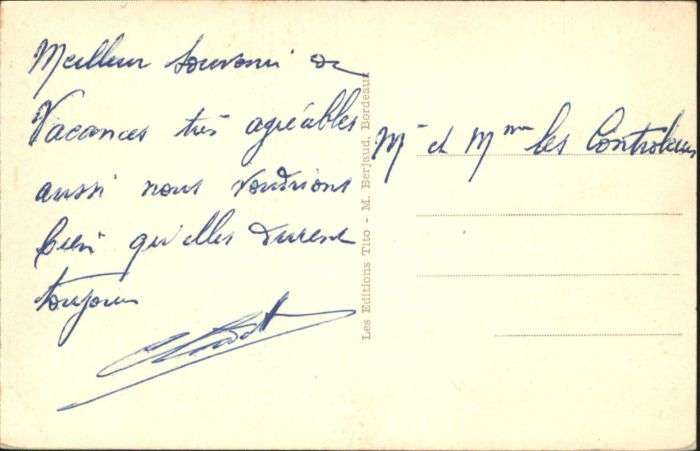 Meilleur souvenir de
Vacances très agréables
aussi nous voudrions
bien qu'elles durent
toujours
Mr et Mme les Controleurs
Les Editions Tito - M. Berjaud, Bordeaux